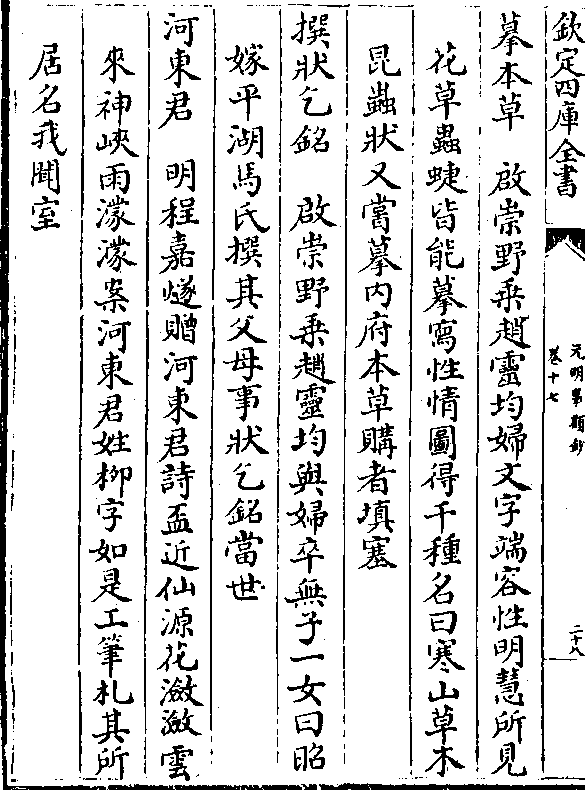 欽定四庫全書
元明事類鈔
卷十七
二十八
摹本草　啟崇野乘趙靈均婦文字端容性明慧所見
花草蟲蜨皆能摹寫性情圖得千種名曰寒山草木
昆蟲狀又嘗摹内府本草購者填塞
撰狀乞銘　啟崇野乘趙靈均與婦卒無子一女曰昭
嫁平湖馬氏撰其父母事狀乞銘當世
河東君　明程嘉燧贈河東君詩盃近仙源花瀲瀲雲
來神峽雨濛濛案河東君姓柳字如是工筆札其所
居名我聞室